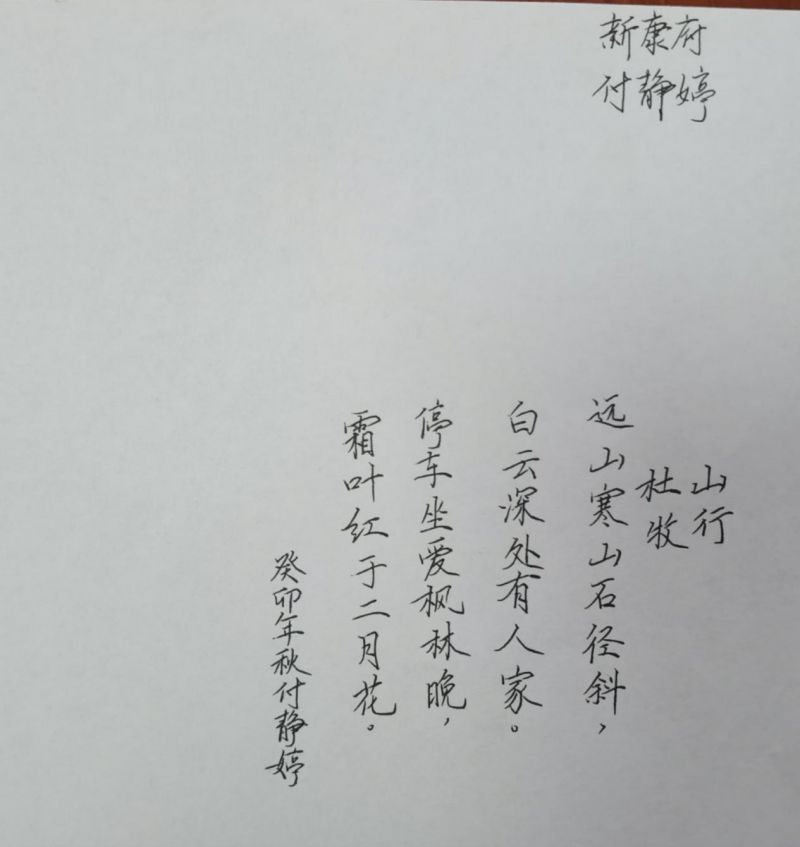 新康府
付静婷
山行
杜牧
远山寒山石径斜，
白云深处有人家。
停车坐爱枫林晚，
霜叶红于二月花。
癸卯年秋付静婷